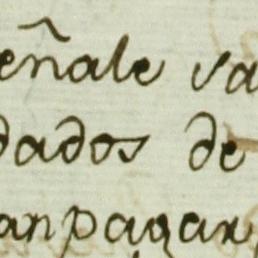 eñale va
dados de
anpagar